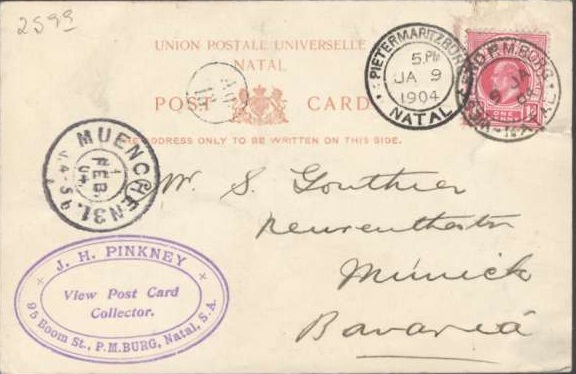 2599
UNION POSTALE UNIVERSELLE
NATAL
POST CARD
THE ADDRESS ONLY TO BE WRITTEN ON THIS SIDE.
PIETERMARITZBURG
5.PM
JA 9
1904
NATAL
P.M.BURG
9 JA
ONE PENNY
MUENCHEN 31.
1
FEB.
04
W. S.
Munich
Bavaria
J. H. PINKNEY
View Post Card
Collector.
95 Boom St., P.M.BURG, Natal, S.A.